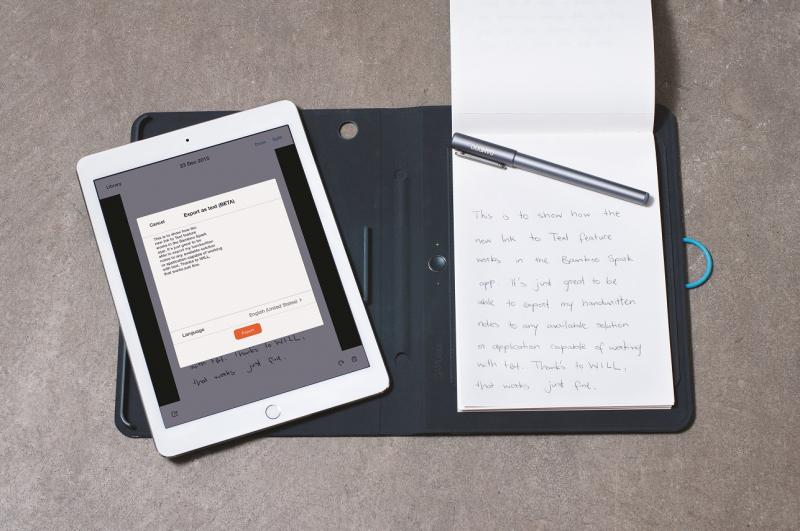 Library
23 Dec 2015
Done
Split
Cancel
Export as text (BETA)
This is to show how the
new Ink to Text feature
works in the Bamboo Spark
app. It's just great to be
able to export my handwritten
notes to any available solution
or application capable of working
with text. Thanks to WILL,
that works just fine.
Language
English (United States) >
Export
with txt. Thanks to WILL,
that works just fine.
bamboo
This is to show how the
new Ink to Text feature
works in the Bamboo Spark
app. It's just great to be
able to export my handwritten
notes to any available solution
or application capable of working
with txt. Thanks to WILL,
that works just fine.